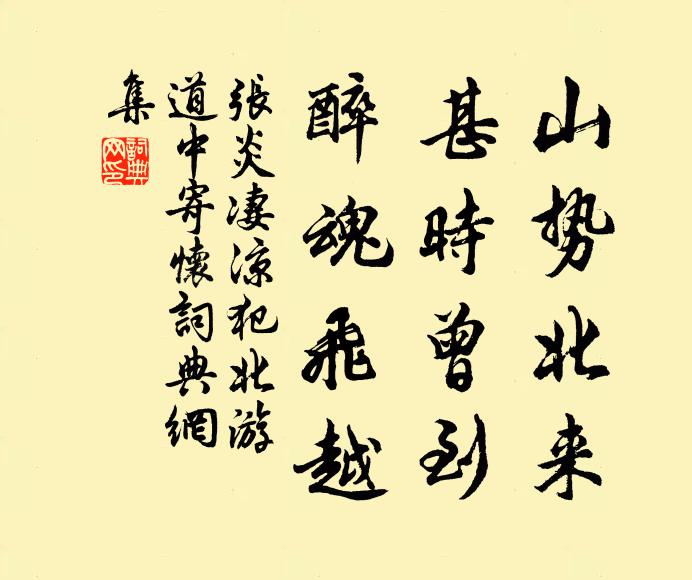 山势北来
甚時曾到
醉魂飛越
張炎凄凉犯北游
道中寄懷詞典網
集
詞典
网印